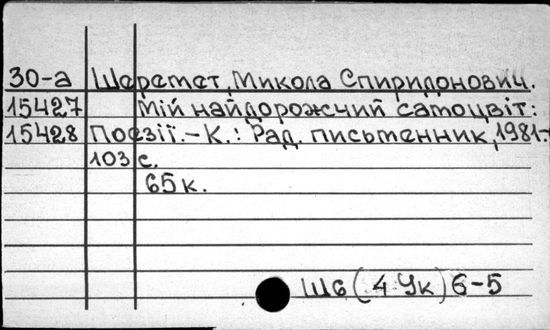 30-а Шеремет, Микола Спиридонович.
15427 Мій найдорожчий самоцвіт:
15428 Поезії.-К.: Рад. письменник, 1981.-
103 с.
65 к.
Ш6(4Ук)6-5